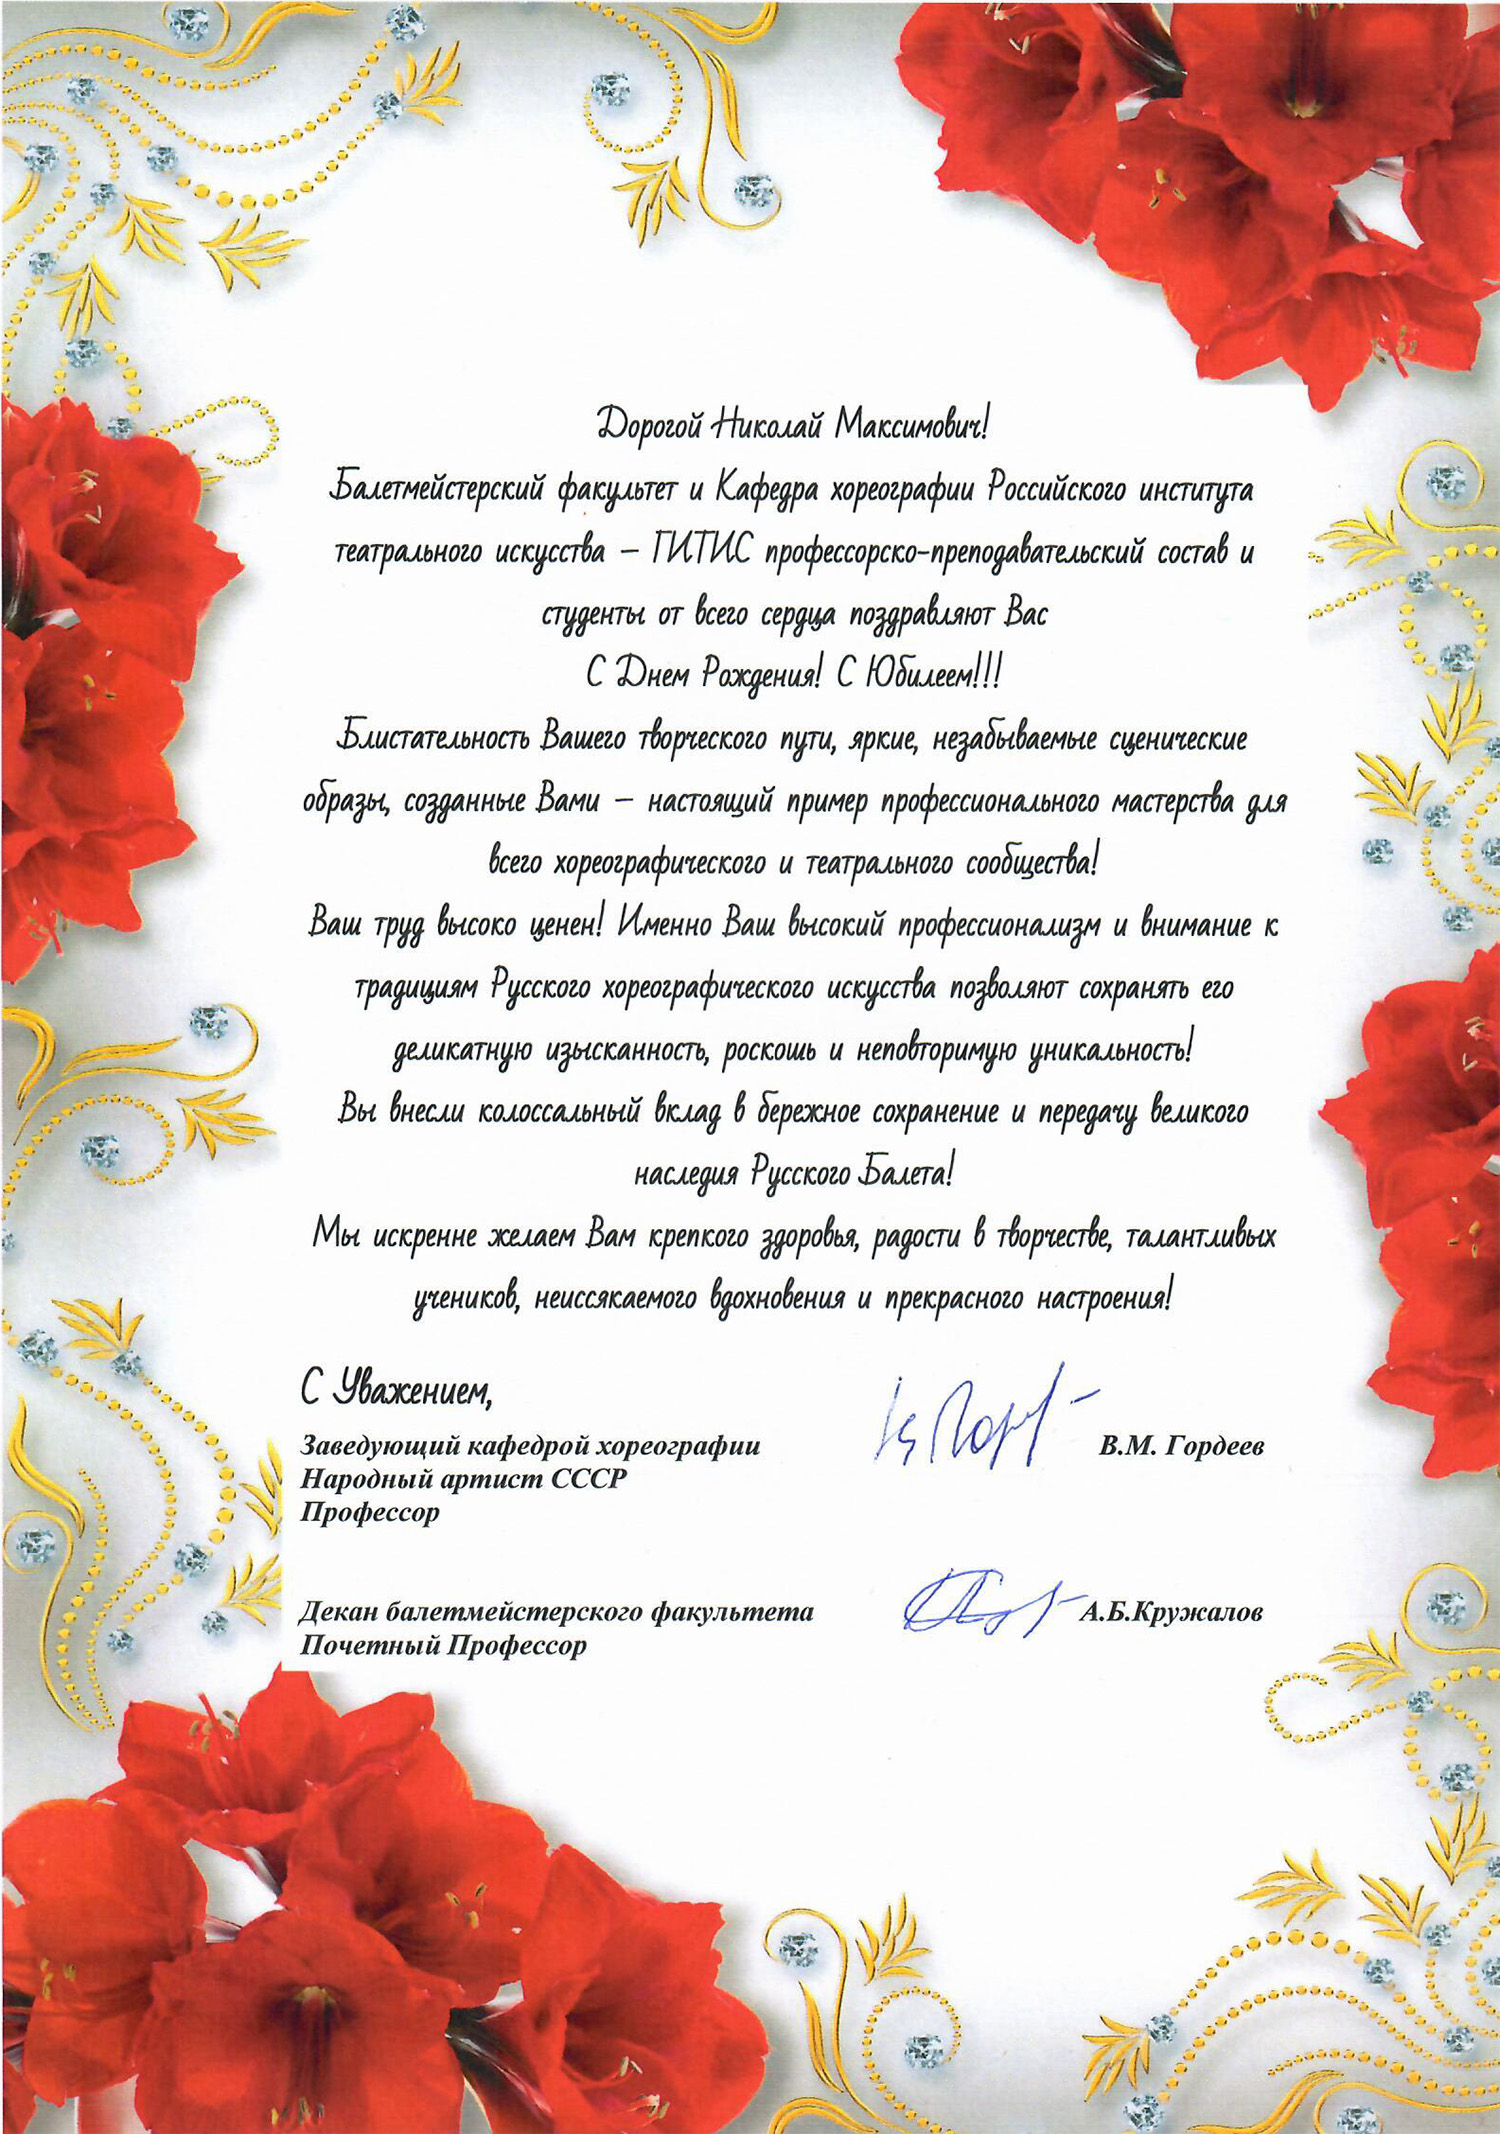 Дорогой Николай Максимович!
Балетмейстерский факультет и Кафедра хореографии Российского института
театрального искусства – ГИТИС профессорско-преподавательский состав и
студенты от всего сердца поздравляют Вас
С Днем Рождения! С Юбилеем!!!
Блистательность Вашего творческого пути, яркие, незабываемые сценические
образы, созданные Вами – настоящий пример профессионального мастерства для
всего хореографического и театрального сообщества!
Ваш труд высоко ценен! Именно Ваш высокий профессионализм и внимание к
традициям Русского хореографического искусства позволяют сохранять его
деликатную изысканность, роскошь и неповторимую уникальность!
Вы внесли колоссальный вклад в бережное сохранение и передачу великого
наследия Русского Балета!
Мы искренне желаем Вам крепкого здоровья, радости в творчестве, талантливых
учеников, неиссякаемого вдохновения и прекрасного настроения!
С Уважением,
Заведующий кафедрой хореографии В.М. Гордеев
Народный артист СССР
Профессор
Декан балетмейстерского факультета А.Б.Кружалов
Почетный Профессор